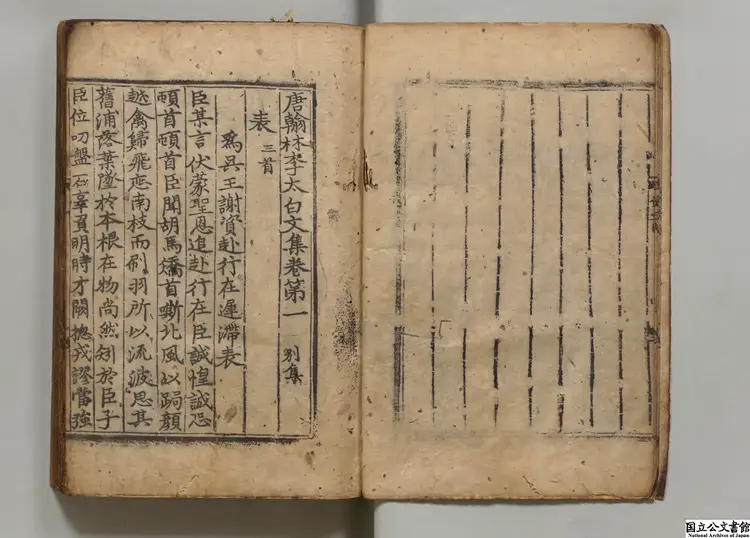 唐翰林李太白文集卷第一 別集
表 三首
爲吳王謝責赴行在遲滯表
臣某言伏蒙聖恩追赴行在臣誠惶誠恐
頓首頓首臣聞胡馬矯首嘶北風以跼顧
越禽歸飛戀南枝而刷羽所以流波思其
舊浦落葉墜於本根在物尚然矧於臣子
臣位叨盤石辜負明時才闕揔戎謬當強
国立公文書館
National Archives of Japan